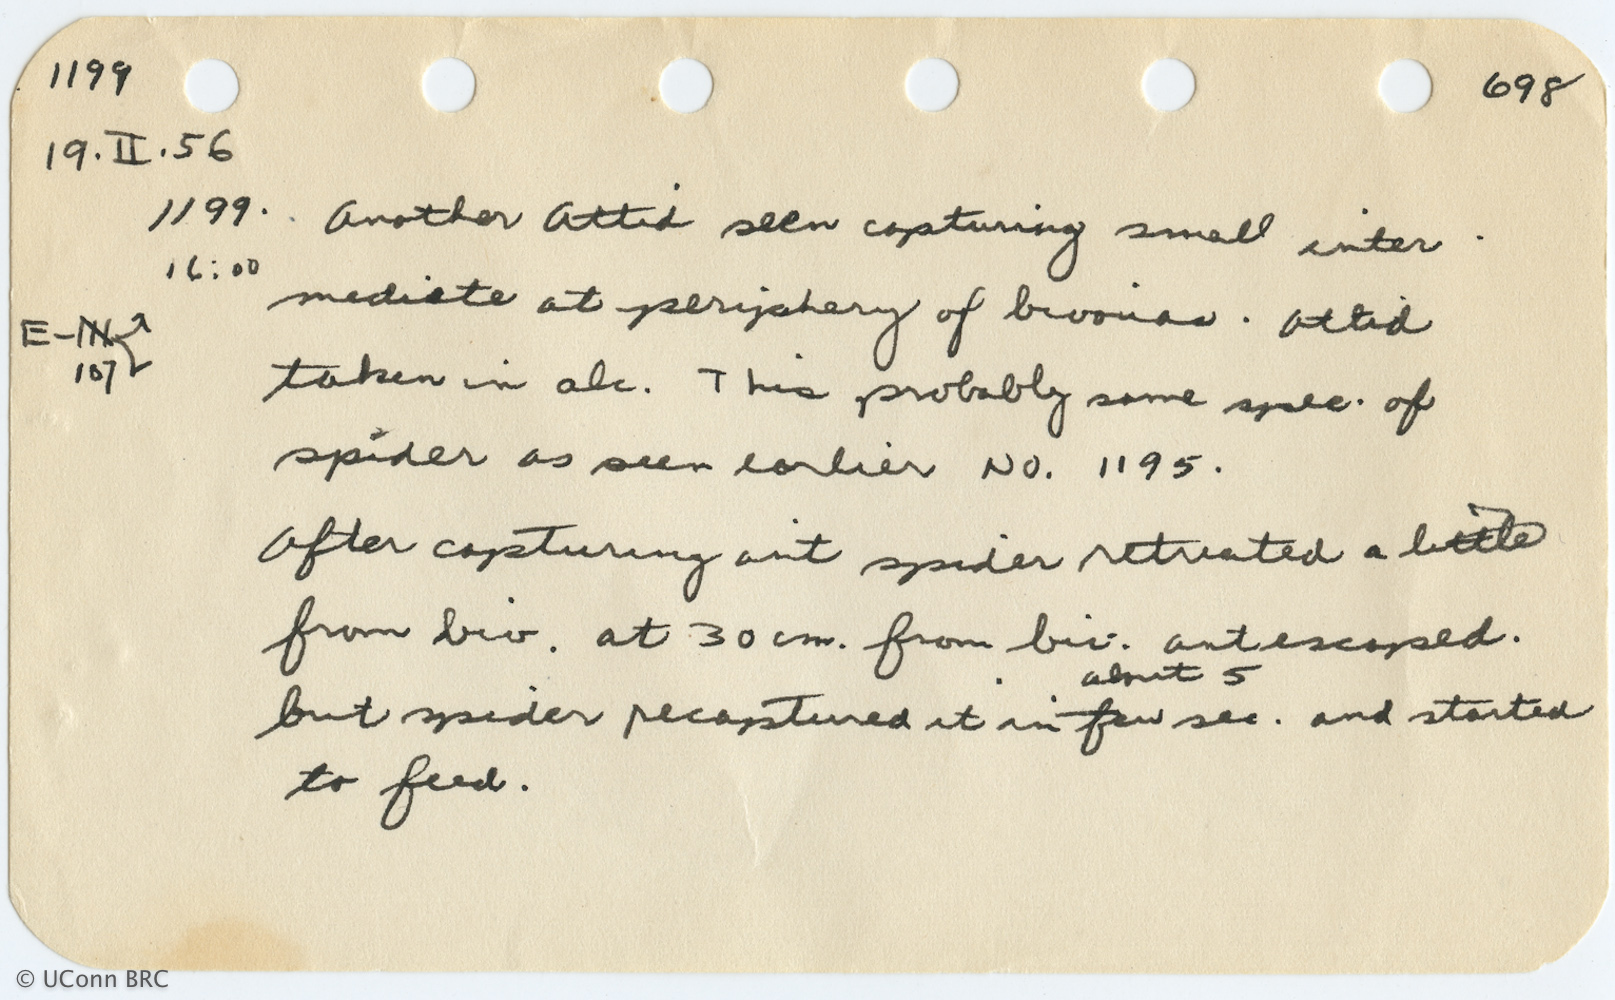 1199 698
19.II.56
1199. Another Attid seen capturing small inter
16:00
mediate at periphery of bivouac. Attid
E-N
107
taken in alc. This probably same spec. of
spider as seen earlier No. 1195.
After capturing ant spider retreated a little
from biv. at 30 cm. from biv. ant escaped.
about 5
but spider recaptured it in few sec. and started
to feed.
© UConn BRC